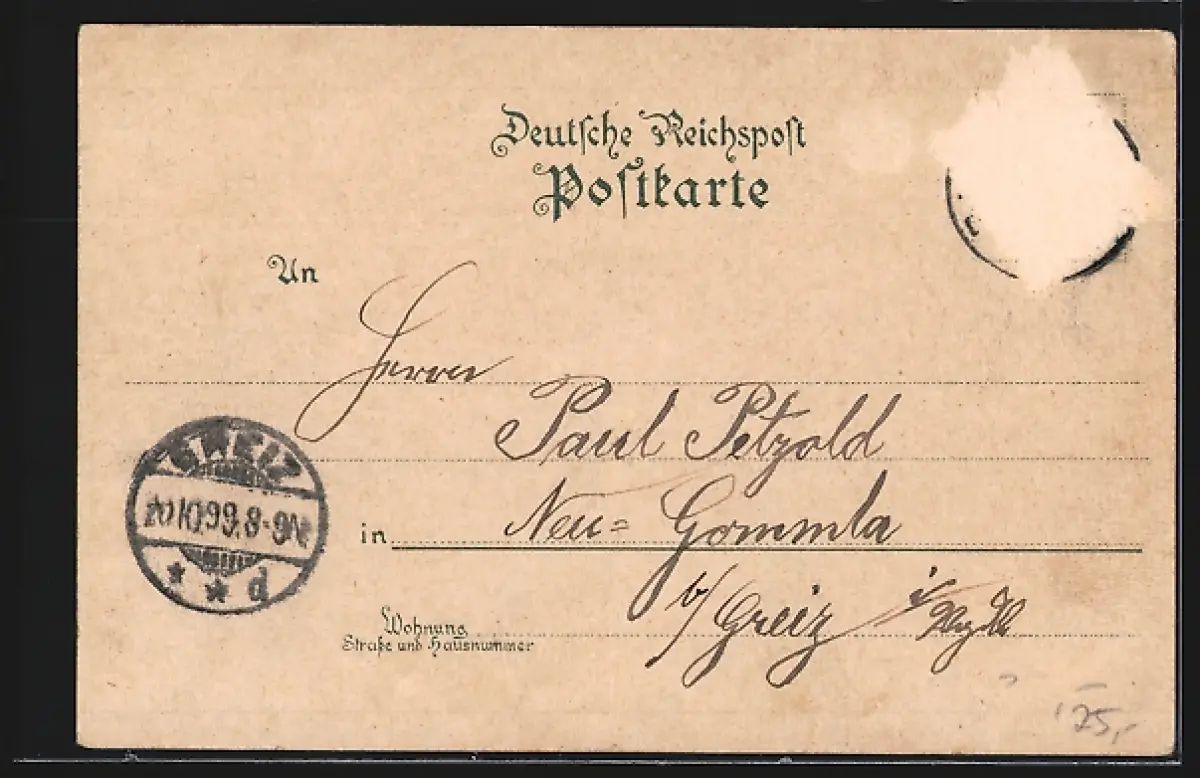 Deutsche Reichspost
Postkarte
An
Herrn
Paul Petzold
in Neu= Gommla
b/ Greiz i/
Wohnung
Straße und Hausnummer
GREIZ
20.10.99.8-9N.
* * d
75,-